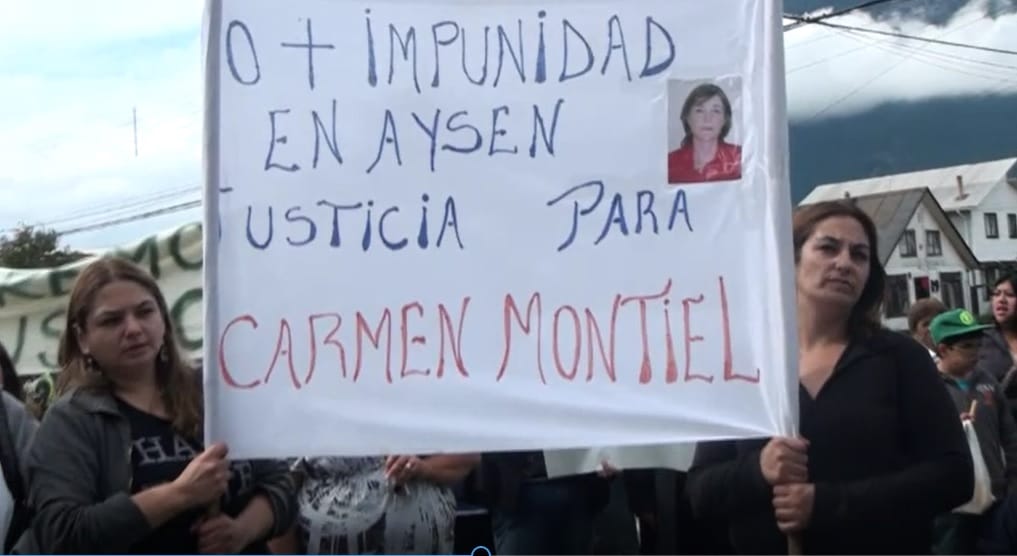 O + IMPUNIDAD
EN AYSEN
JUSTICIA PARA
CARMEN MONTIEL
HA